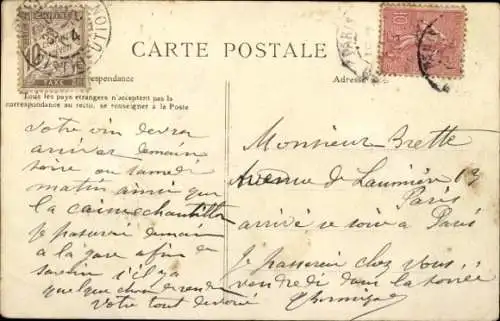 CHIFFRE
10
TAXE
10
CARTE POSTALE
Correspondance
Adresse
Tous les pays étrangers n'acceptent pas la
correspondance au recto, se renseigner à la Poste
Votre vin devra
arriver demain
soir ou samedi
matin ainsi que
la caisse échantillon
Je passerai demain
à la gare afin de
savoir s'il y a
quelque chose
Votre tout dévoué
Monsieur Brette
Avenue de Laumière 13
Paris
arrivé ce soir à Paris
Je passerai chez vous
vendredi dans la soirée